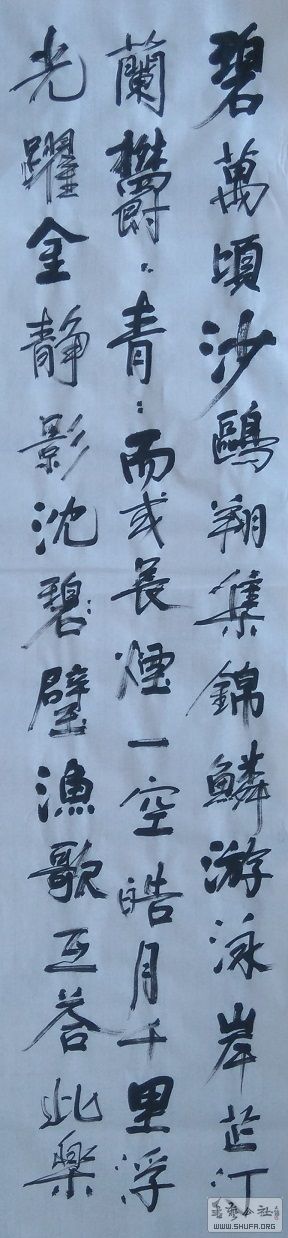 碧萬頃沙鷗翔集錦鱗游泳岸芷汀
蘭鬱〻青〻而或長煙一空皓月千里浮
光躍金静影沈碧璧漁歌互答此樂
公社
WWW.SHUFA.ORG